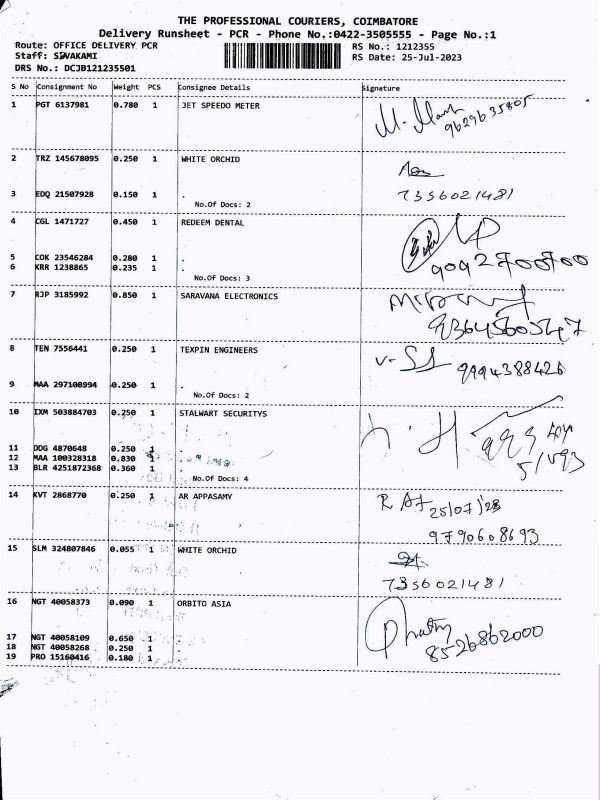 THE PROFESSIONAL COURIERS, COIMBATORE
Delivery Runsheet - PCR - Phone No.:0422-3505555 - Page No.:1
Route: OFFICE DELIVERY PCR RS No.: 1212355
Staff: SIVAKAMI RS Date: 25-Jul-2023
DRS No.: DCJB121235501
S No Consignment No Weight PCS Consignee Details Signature
1 PGT 6137981 0.780 1 JET SPEEDO METER
9629635805
2 TRZ 145678095 0.250 1 WHITE ORCHID
3 EDQ 21507928 0.150 1 . 7356021481
No.Of Docs: 2
4 CGL 1471727 0.450 1 REDEEM DENTAL
5 COK 23546284 0.280 1 .
6 KRR 1238865 0.235 1 . 9092700700
No.Of Docs: 3
7 RJP 3185992 0.850 1 SARAVANA ELECTRONICS
8 TEN 7556441 0.250 1 TEXPIN ENGINEERS
9994388426
9 MAA 297108994 0.250 1 .
No.Of Docs: 2
10 IXM 503884703 0.250 1 STALWART SECURITYS
11 DDG 4870648 0.250 1 .
12 MAA 100328318 0.830 1 .
13 BLR 4251872368 0.360 1 .
No.Of Docs: 4
14 KVT 2868770 0.250 1 AR APPASAMY
25/07/23
9790608693
15 SLM 324807846 0.055 1 WHITE ORCHID
7356021481
16 NGT 40058373 0.090 1 ORBITO ASIA
17 NGT 40058109 0.650 1 .
8526862000
18 NGT 40058268 0.250 1 .
19 PRO 15160416 0.180 1 .